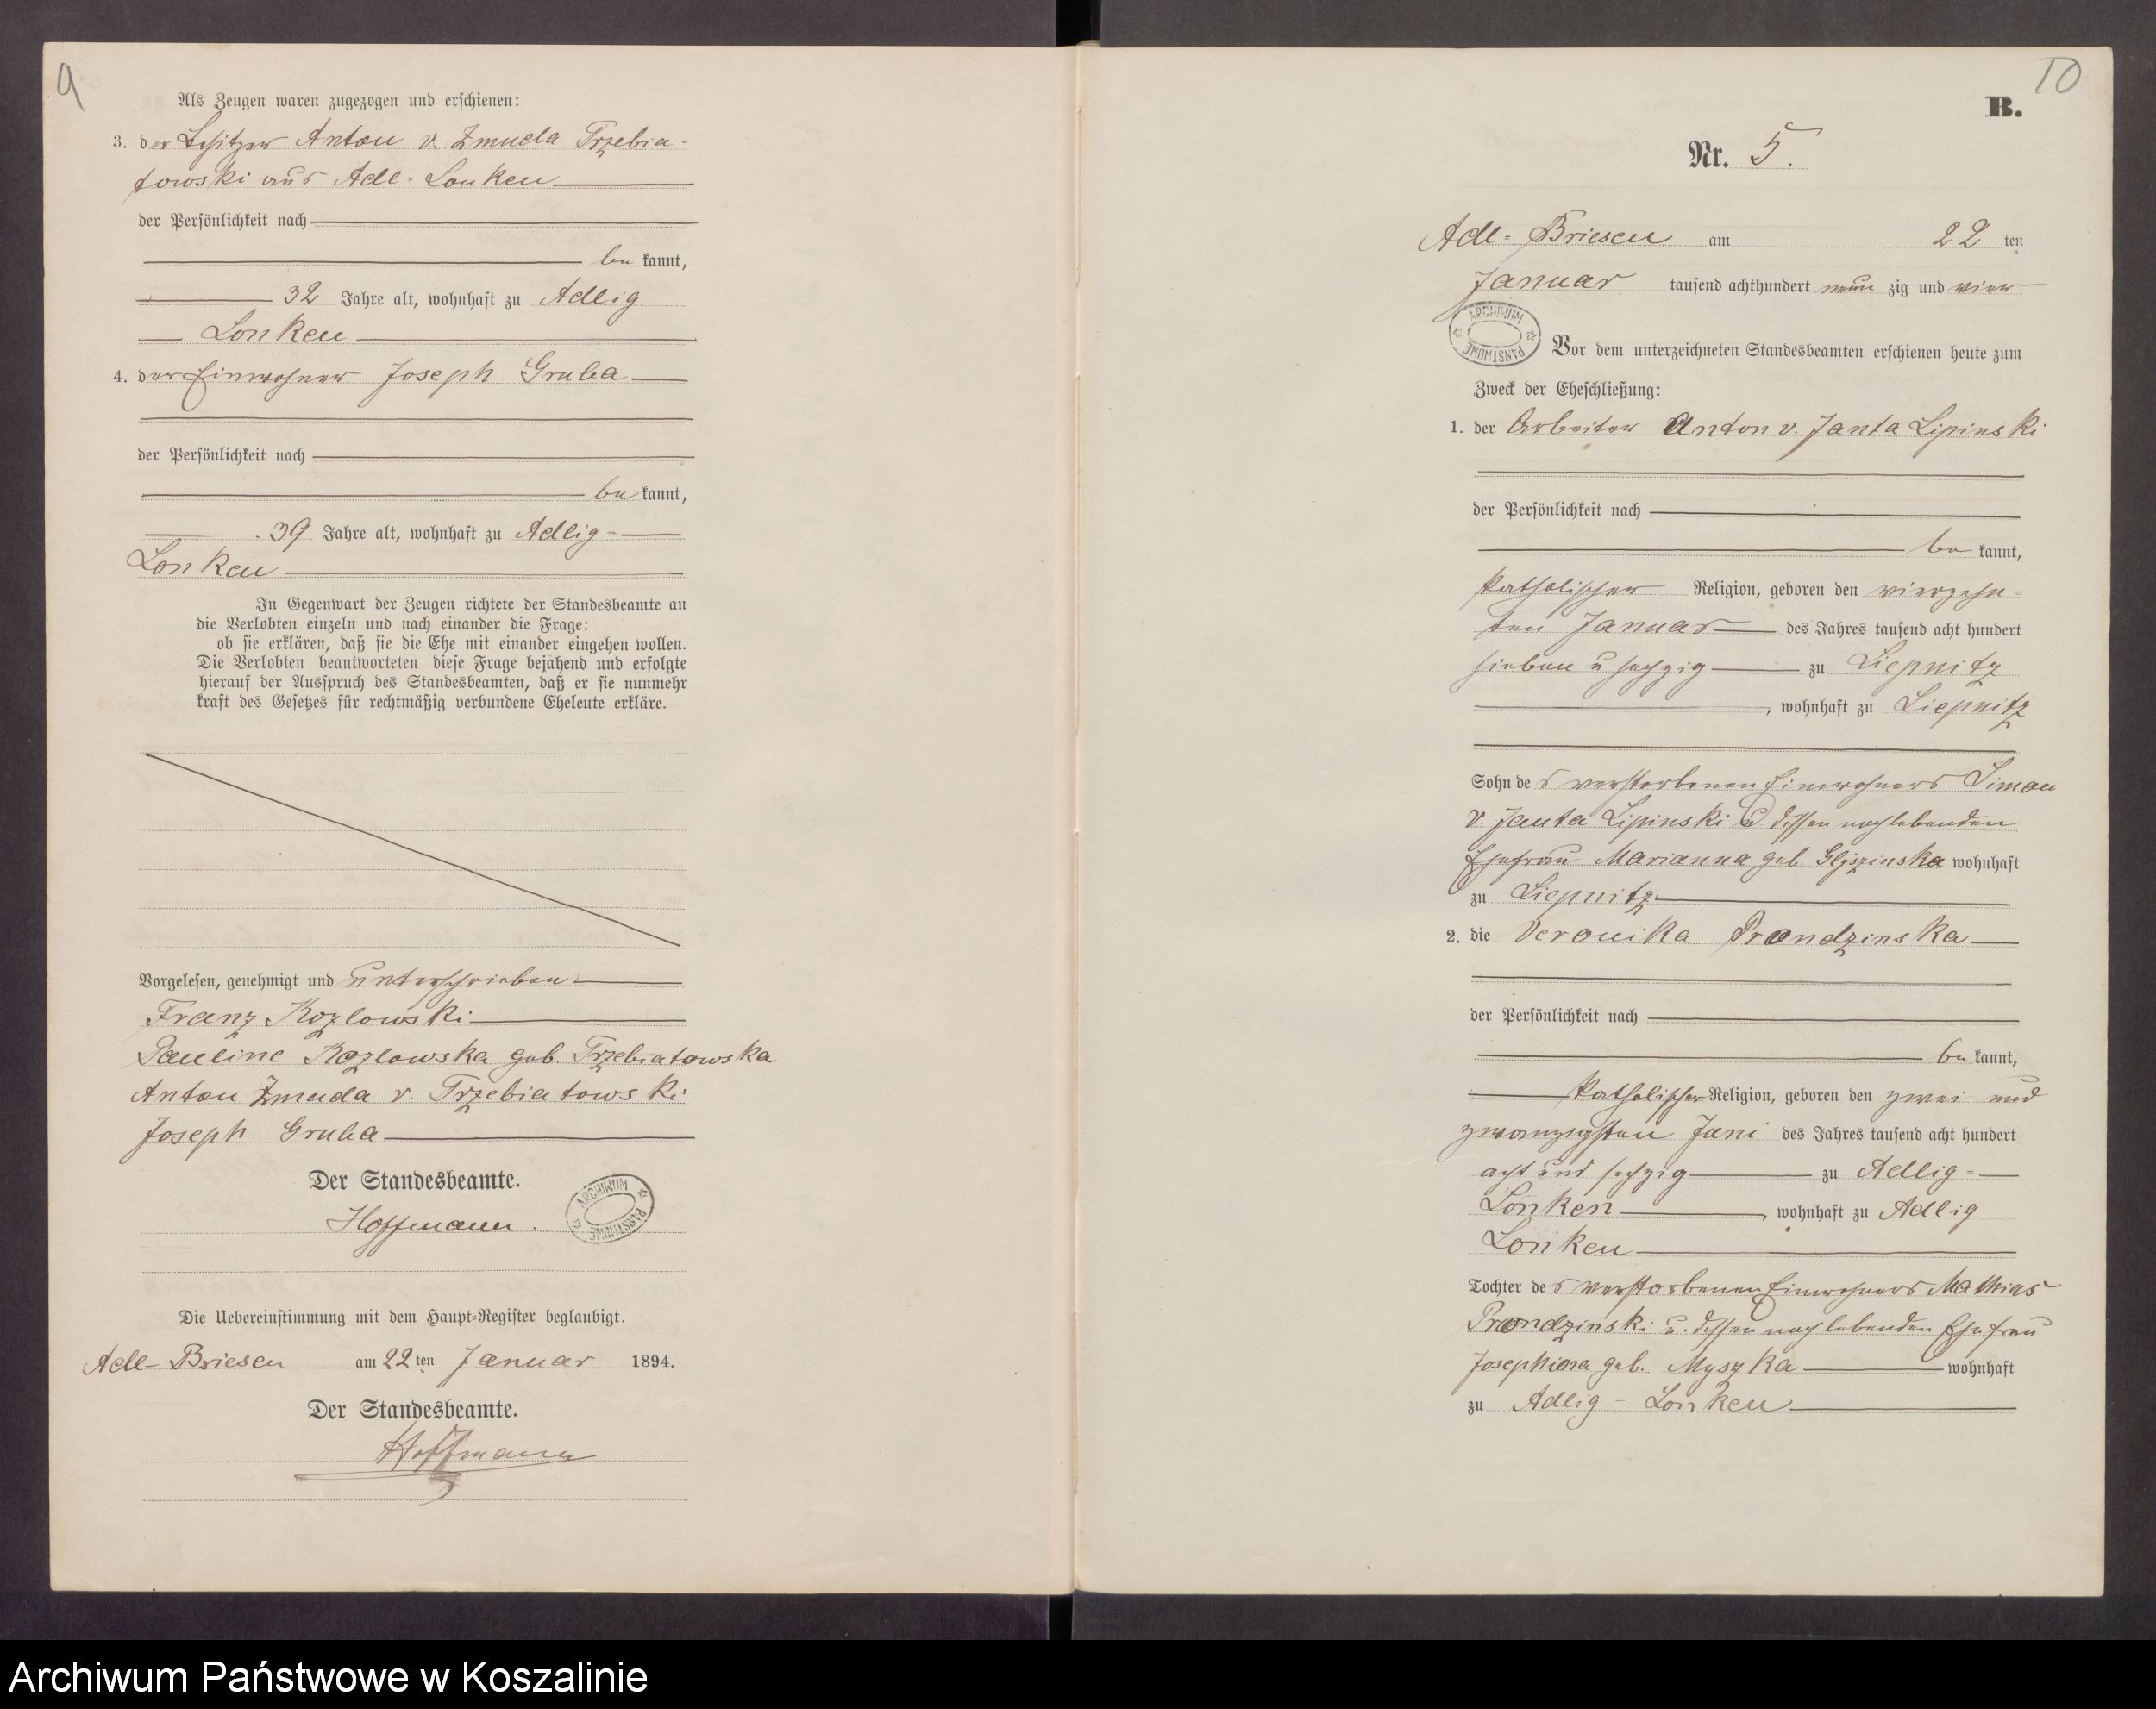 9
Als Zeugen waren zugezogen und erschienen:
3. der Besitzer Anton v. Zmuda Trzebia-
towski aus Adl. Lonken
der Persönlichkeit nach
be kannt,
32 Jahre alt, wohnhaft zu Adlig
Lonken
4. der Einwohner Joseph Gruba
der Persönlichkeit nach
be kannt,
39 Jahre alt, wohnhaft zu Adlig-
Lonken
In Gegenwart der Zeugen richtete der Standesbeamte an
die Verlobten einzeln und nach einander die Frage:
ob sie erklären, daß sie die Ehe mit einander eingehen wollen.
Die Verlobten beantworteten diese Frage bejahend und erfolgte
hierauf der Ausspruch des Standesbeamten, daß er sie nunmehr
kraft des Gesetzes für rechtmäßig verbundene Eheleute erkläre.
Vorgelesen, genehmigt und unterschrieben
Franz Kozlowski
Pauline Kozlowska geb. Trzebiatowska
Anton Zmuda v. Trzebiatowski
Joseph Gruba
Der Standesbeamte.
ARCHIWUM PAŃSTWOWE
Hoffmann.
Die Uebereinstimmung mit dem Haupt-Register beglaubigt.
Adl-Briesen am 22 ten Januar 1894.
Der Standesbeamte.
Hoffmann
10
B.
Nr. 5.
Adl-Briesen am 22 ten
Januar tausend achthundert neun zig und vier
ARCHIWUM PAŃSTWOWE
Vor dem unterzeichneten Standesbeamten erschienen heute zum
Zweck der Eheschließung:
1. der Arbeiter Anton v. Janta Lipinski
der Persönlichkeit nach
be kannt,
katholischer Religion, geboren den vierzehn-
ten Januar des Jahres tausend acht hundert
sieben u sechzig zu Liepnitz
, wohnhaft zu Liepnitz
Sohn des verstorbenen Einwohners Simon
v. Janta Lipinski u. dessen nachlebenden
Ehefrau Marianna geb. wohnhaft
zu Liepnitz
2. die Veronika Prondzinska
der Persönlichkeit nach
be kannt,
katholischer Religion, geboren den zwei und
zwanzigsten Juni des Jahres tausend acht hundert
acht und sechzig zu Adlig-
Lonken , wohnhaft zu Adlig
Lonken
Tochter des verstorbenen Einwohners Mathias
Prondzinski u. dessen nachlebenden Ehefrau
Josephina geb. Myszka wohnhaft
zu Adlig-Lonken
Archiwum Państwowe w Koszalinie